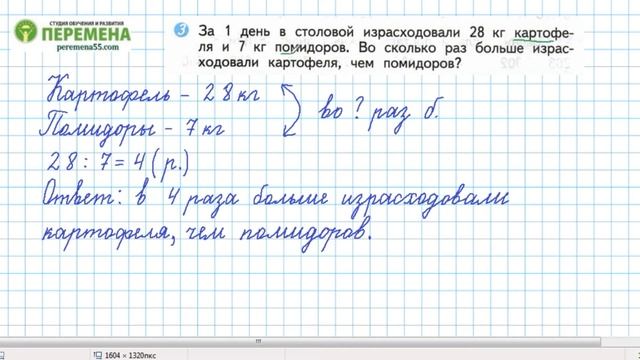 СТУДИЯ ОБУЧЕНИЯ И РАЗВИТИЯ
ПЕРЕМЕНА
peremena55.com
3 За 1 день в столовой израсходовали 28 кг картофе-
ля и 7 кг помидоров. Во сколько раз больше израс-
ходовали картофеля, чем помидоров?
Картофель – 28 кг
во ? раз б.
Помидоры – 7 кг
28 : 7 = 4 (р.)
Ответ: в 4 раза больше израсходовали
картофеля, чем помидоров.
1604 × 1320пкс